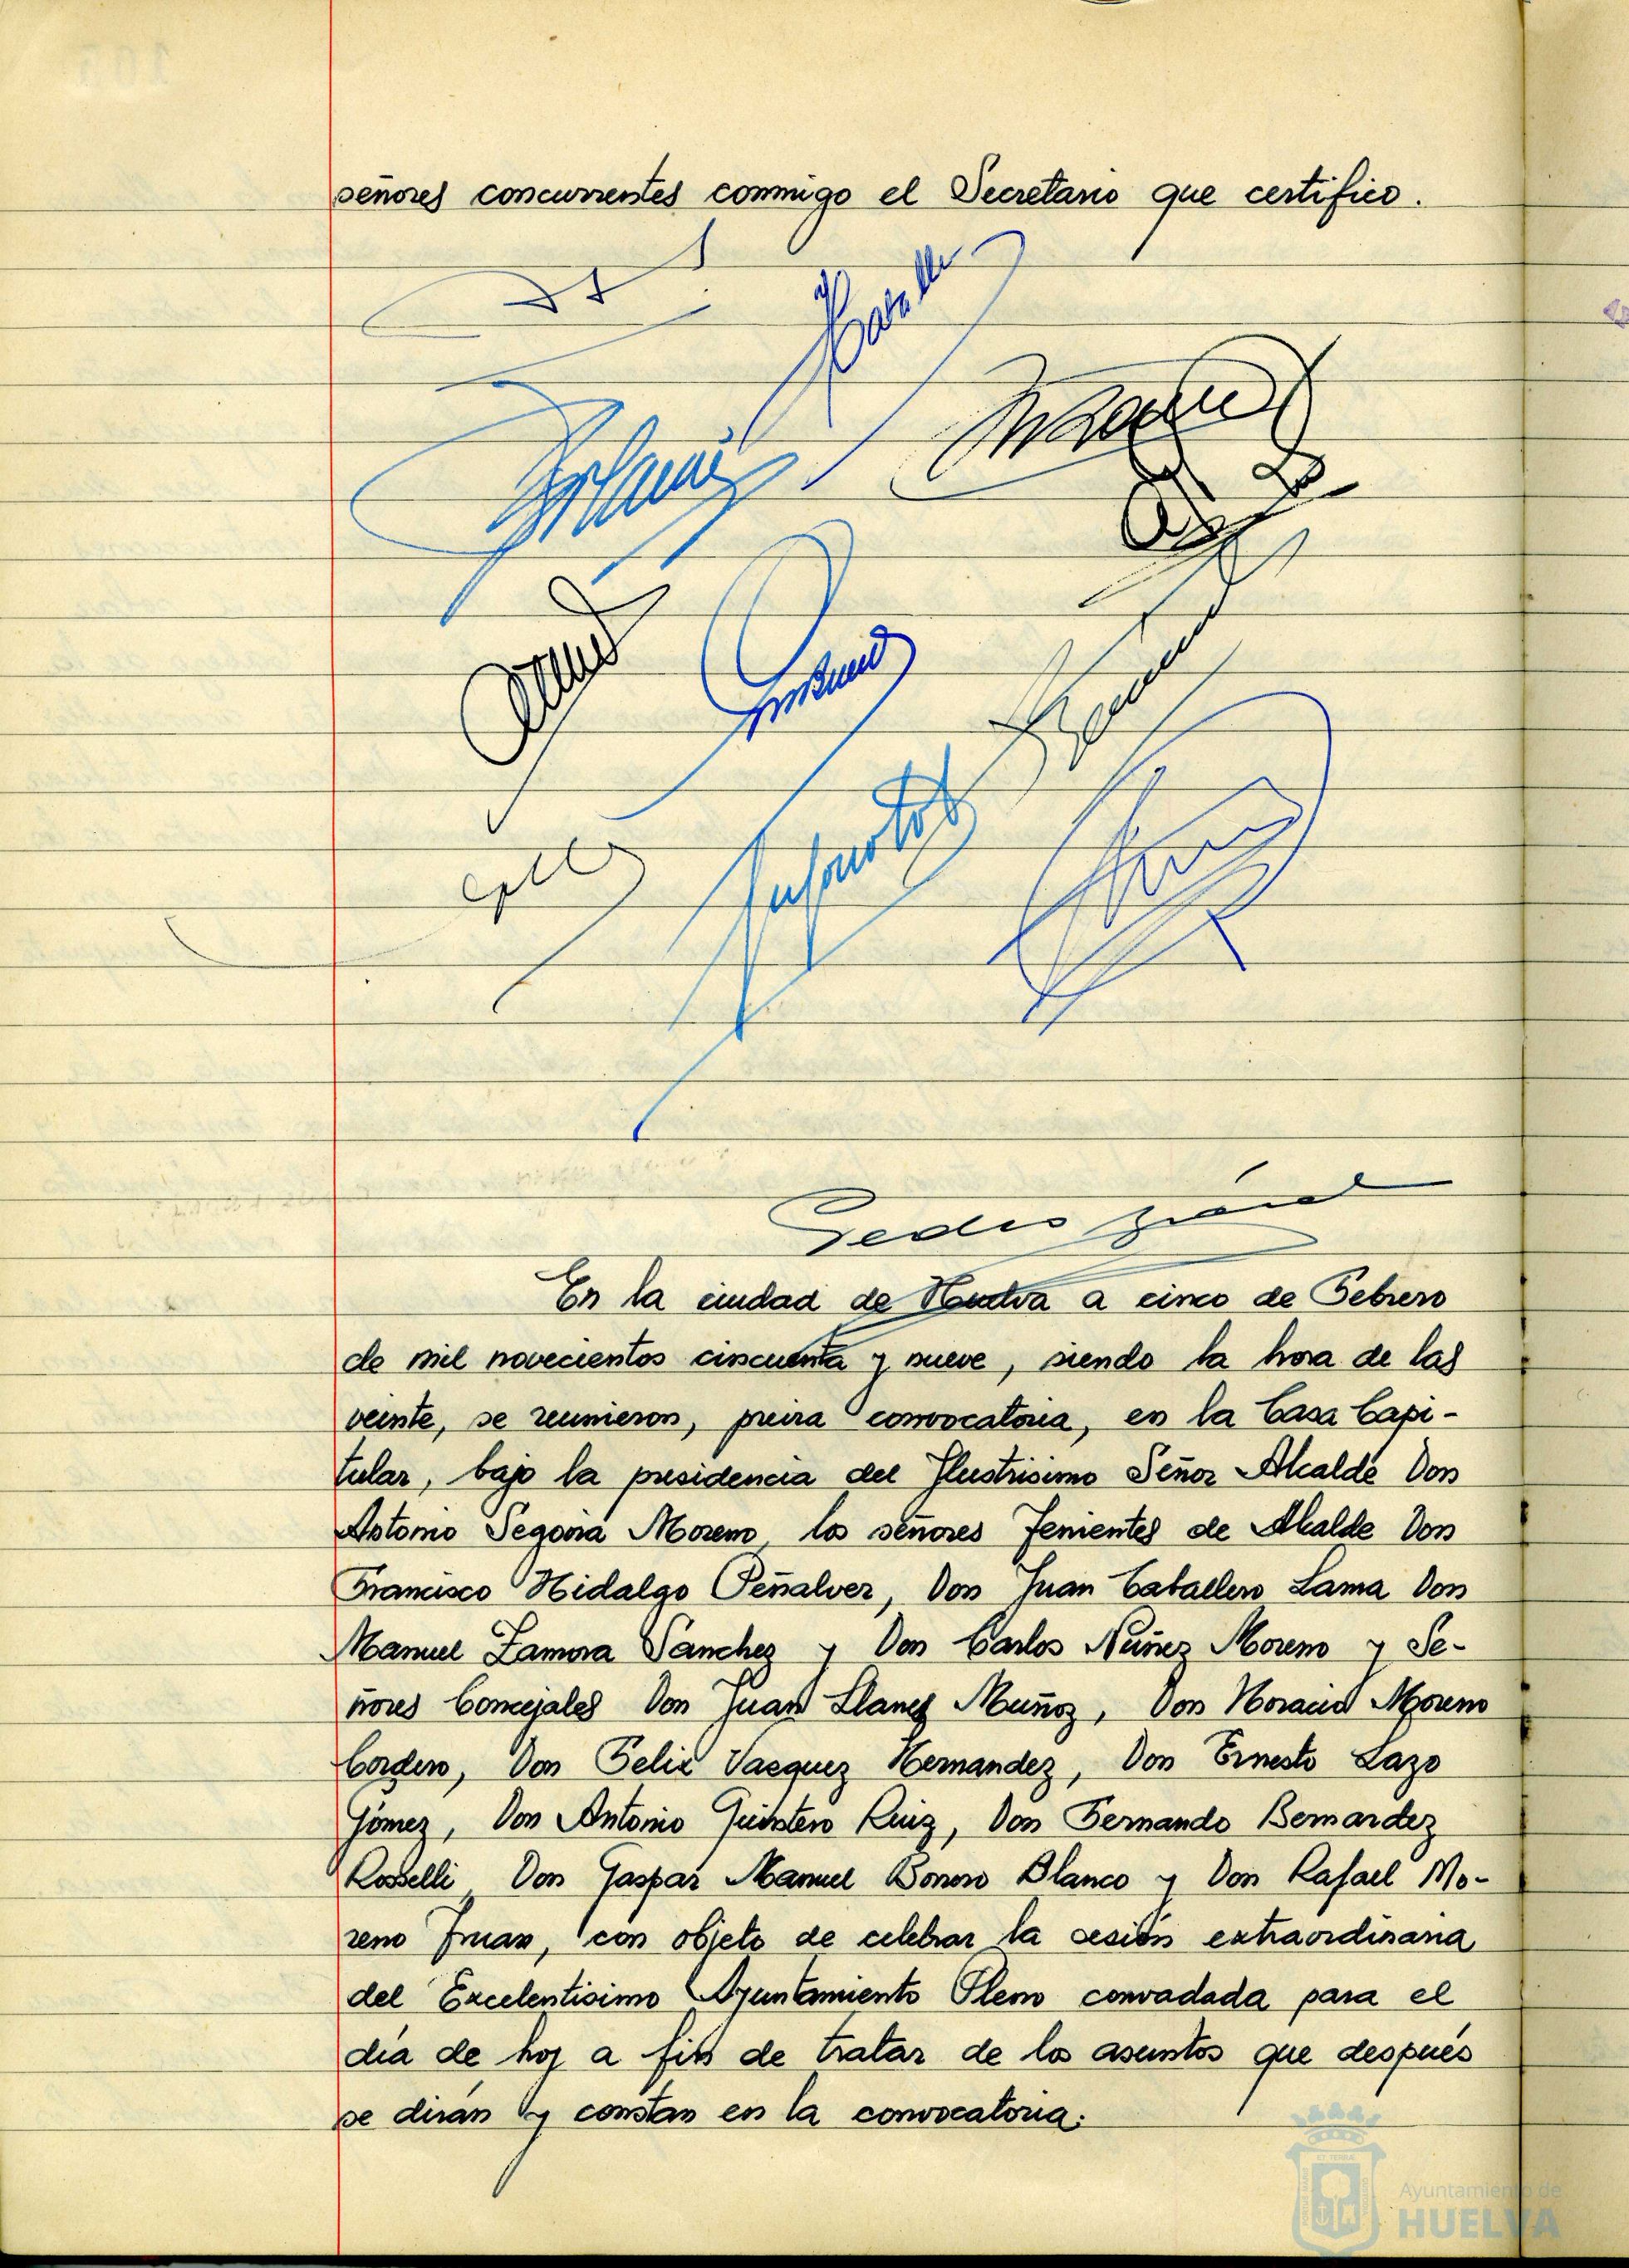 señores concurrentes conmigo el Secretario que certifico.
En la ciudad de Huelva a cinco de Febrero
de mil novecientos cincuenta y nueve, siendo la hora de las
veinte, se reunieron, previa convocatoria, en la Casa Capi-
tular, bajo la presidencia del Ilustrisimo Señor Alcalde Don
Antonio Segovia Moreno, los señores Tenientes de Alcalde Don
Francisco Hidalgo Peñalver, Don Juan Caballero Lama Don
Manuel Zamora Sanchez y Don Carlos Nuñez Moreno y Se-
ñores Concejales Don Juan Llanes Muñoz, Don Horacio Moreno
Cordero, Don Felix Vazquez Hernandez, Don Ernesto Lazo
Gómez, Don Antonio Quintero Ruiz, Don Fernando Bernardez
Rosselli, Don Gaspar Manuel Borrero Blanco y Don Rafael Mo-
reno con objeto de celebrar la sesión extraordinaria
del Excelentisimo Ayuntamiento Pleno para el
día de hoy a fin de tratar de los asuntos que después
se dirán y constan en la convocatoria:
Ayuntamiento de
HUELVA